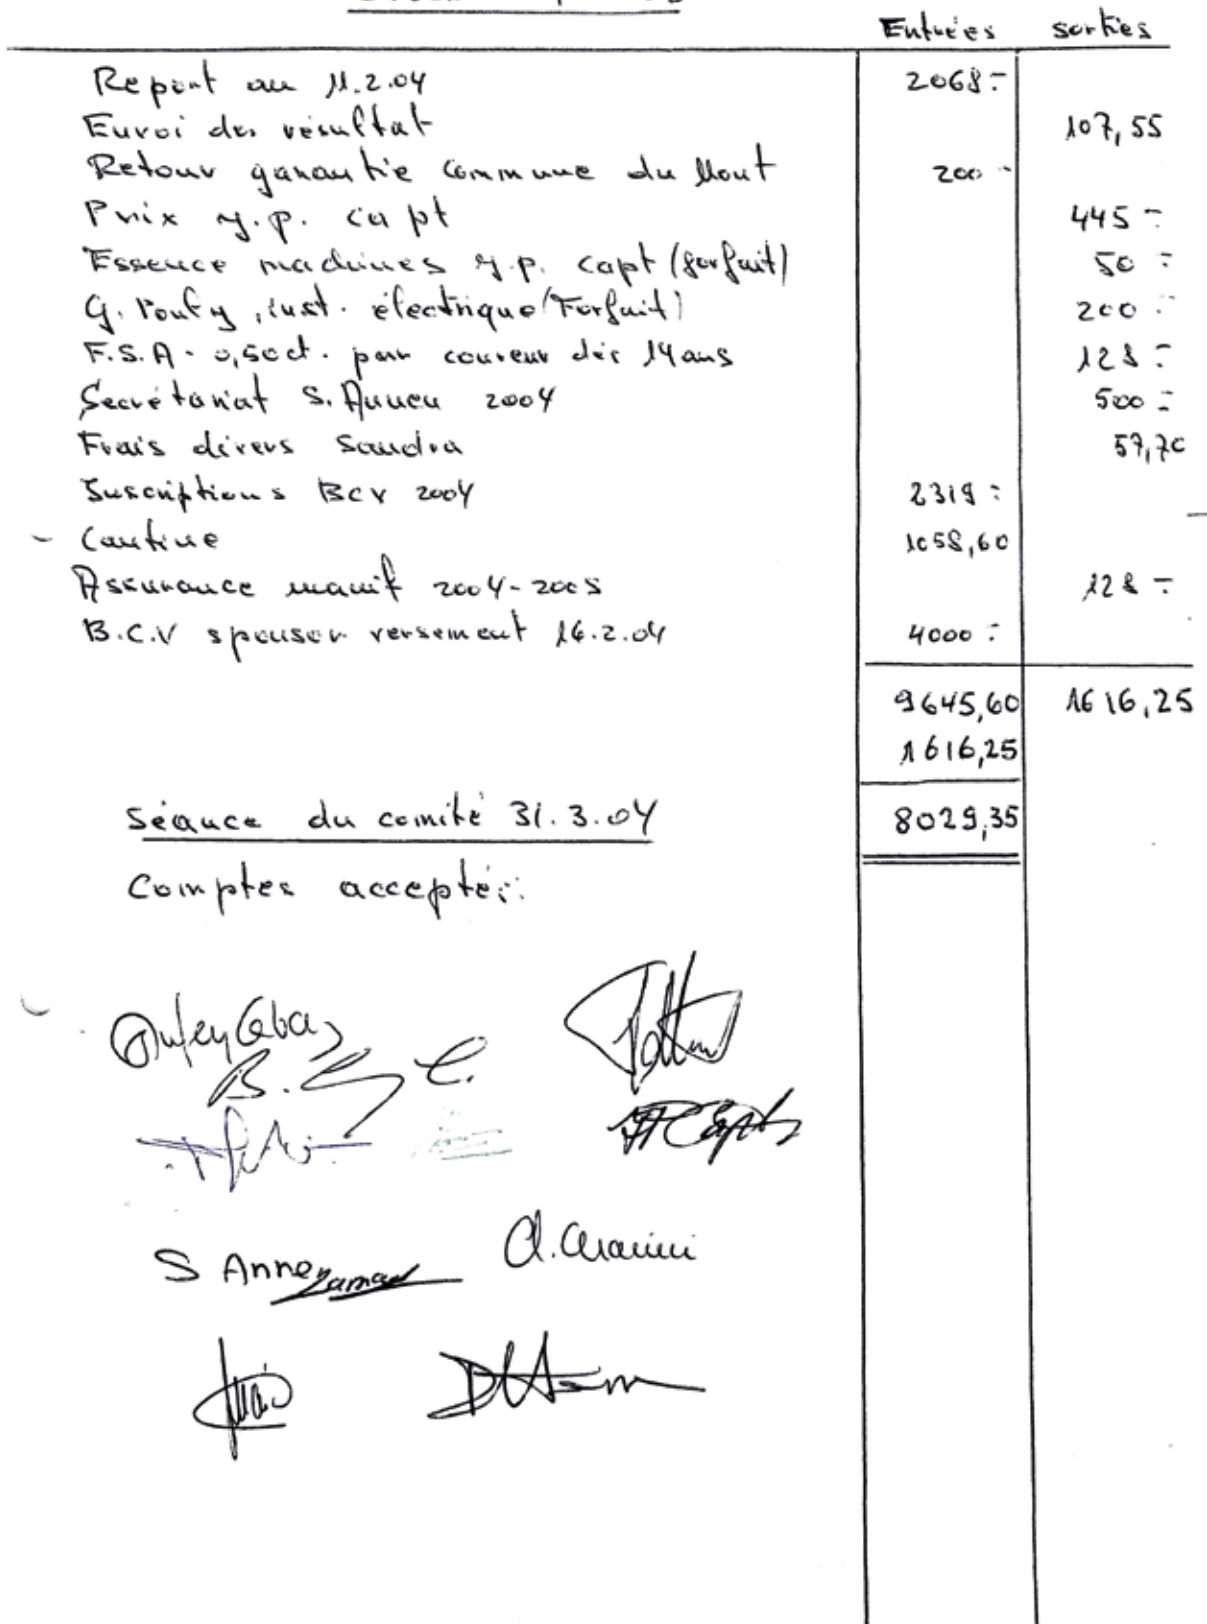 Entrées sorties
Report au 11.2.04 2068.-
Envoi des résultat 107,55
Retour garantie commune du Mont 200.-
Prix J.P. Capt 445.-
Essence machines J.P. Capt (forfait) 50.-
G. , inst. électrique (Forfait) 200.-
F.S.A - 0,50ct. par coureur dès 14 ans 128.-
Secrétariat S. Annen 2004 500.-
Frais divers Sandra 57,70
Inscriptions BCV 2004 2319.-
- Cantine 1058,60
Assurance manif 2004-2005 128.-
B.C.V sponsor versement 16.2.04 4000.-
9645,60 1616,25
1616,25
Séance du comité 31.3.04 8029,35
Comptes acceptés:
B.
S Annen